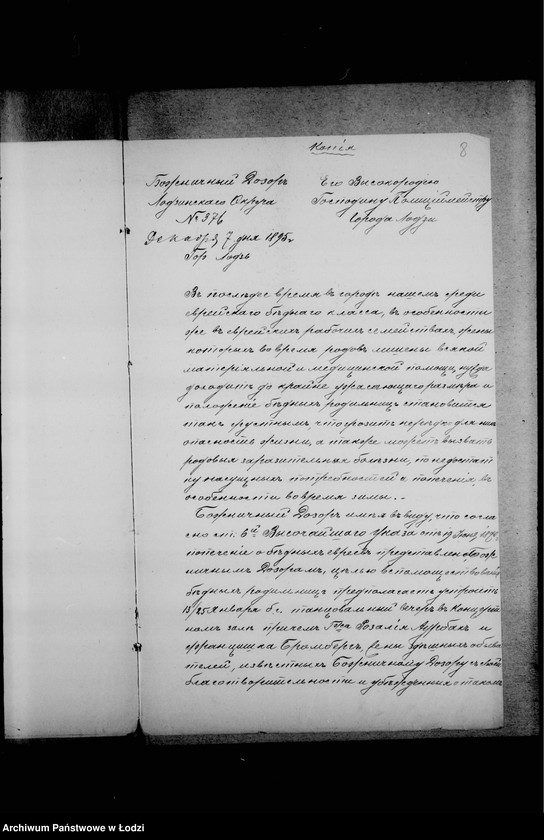 Копія
8
Божничный Дозоръ
Лодзинскаго Округа
№ 376
Декабря 7 дня 1895 г
Гор. Лодзь
Его Высокородію
Господину Полиціймейстеру
Города Лодзи
Въ послѣднее время въ городѣ нашемъ среди
еврейскаго бѣднаго класса, въ особенности
же въ еврейскихъ рабочихъ семействахъ, жены
которыхъ во время родовъ лишены всякой
матеріяльной и медицинской помощи, нужда
доходитъ до крайне ужасающаго размѣра и
положеніе бѣдныхъ родильницъ становится
такъ грустнымъ, что грозитъ нерѣдко для нихъ
опасность жизни, а также можетъ вызвать
родовыя заразительныя болѣзни, по недостат
ку насущныхъ потребностей и попеченія, въ
особенности во время зимы. –
Божничный Дозоръ имѣя въ виду, что соглас
но ст. 6й Высочайшаго Указа отъ
попеченіе о бѣдныхъ евреяхъ предоставлено Бож
ничнымъ Дозорамъ, цѣлью вспомоществованія
бѣдныхъ родильницъ предполагаетъ устроить
13/25 Января б.г. танцовальный вечеръ въ Концерт
номъ залѣ причемъ Г-жа Розалія Ауэрбахъ и
Францишка Бромбергъ, жены здѣшныхъ обыва
телей, извѣстныхъ Божничному Дозору съ своей
благотворительности и убѣжденныхъ о такомъ
Archiwum Państwowe w Łodzi